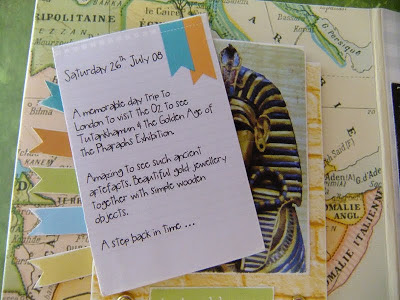 RIPOLITAINE
BARKA
le Caire
G Persique
Saturday 26th July 08
A memorable day trip to
London to visit the O2 to see
Tutankhamun & the Golden Age of
the Pharaohs Exhibition.
Amazing to see such ancient
artefacts. Beautiful gold jewellery
together with simple wooden
objects.
A step back in time...
G. d'Aden
SOMALIE
ANGL.
SOMALIE ITALIENNE